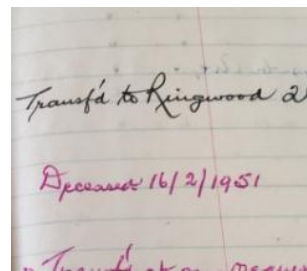 Transf'd to Ringwood 2
Deceased 16/2/1951
Transf'd at